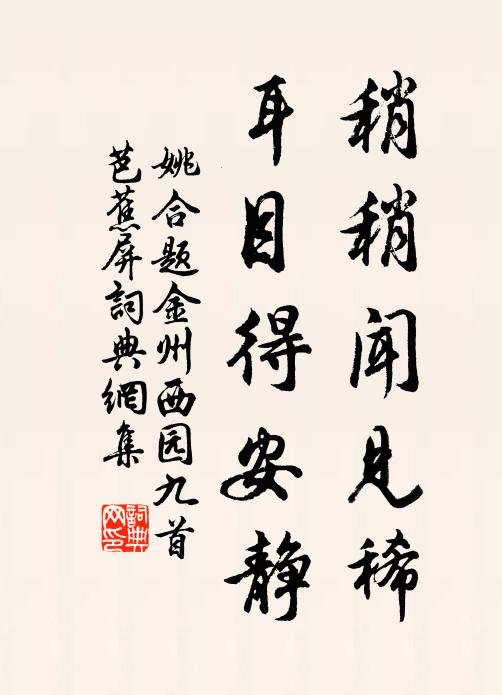 稍稍闻见稀
耳目得安静
姚合题金州西园九首
芭蕉屏詞典網集
詞典网印